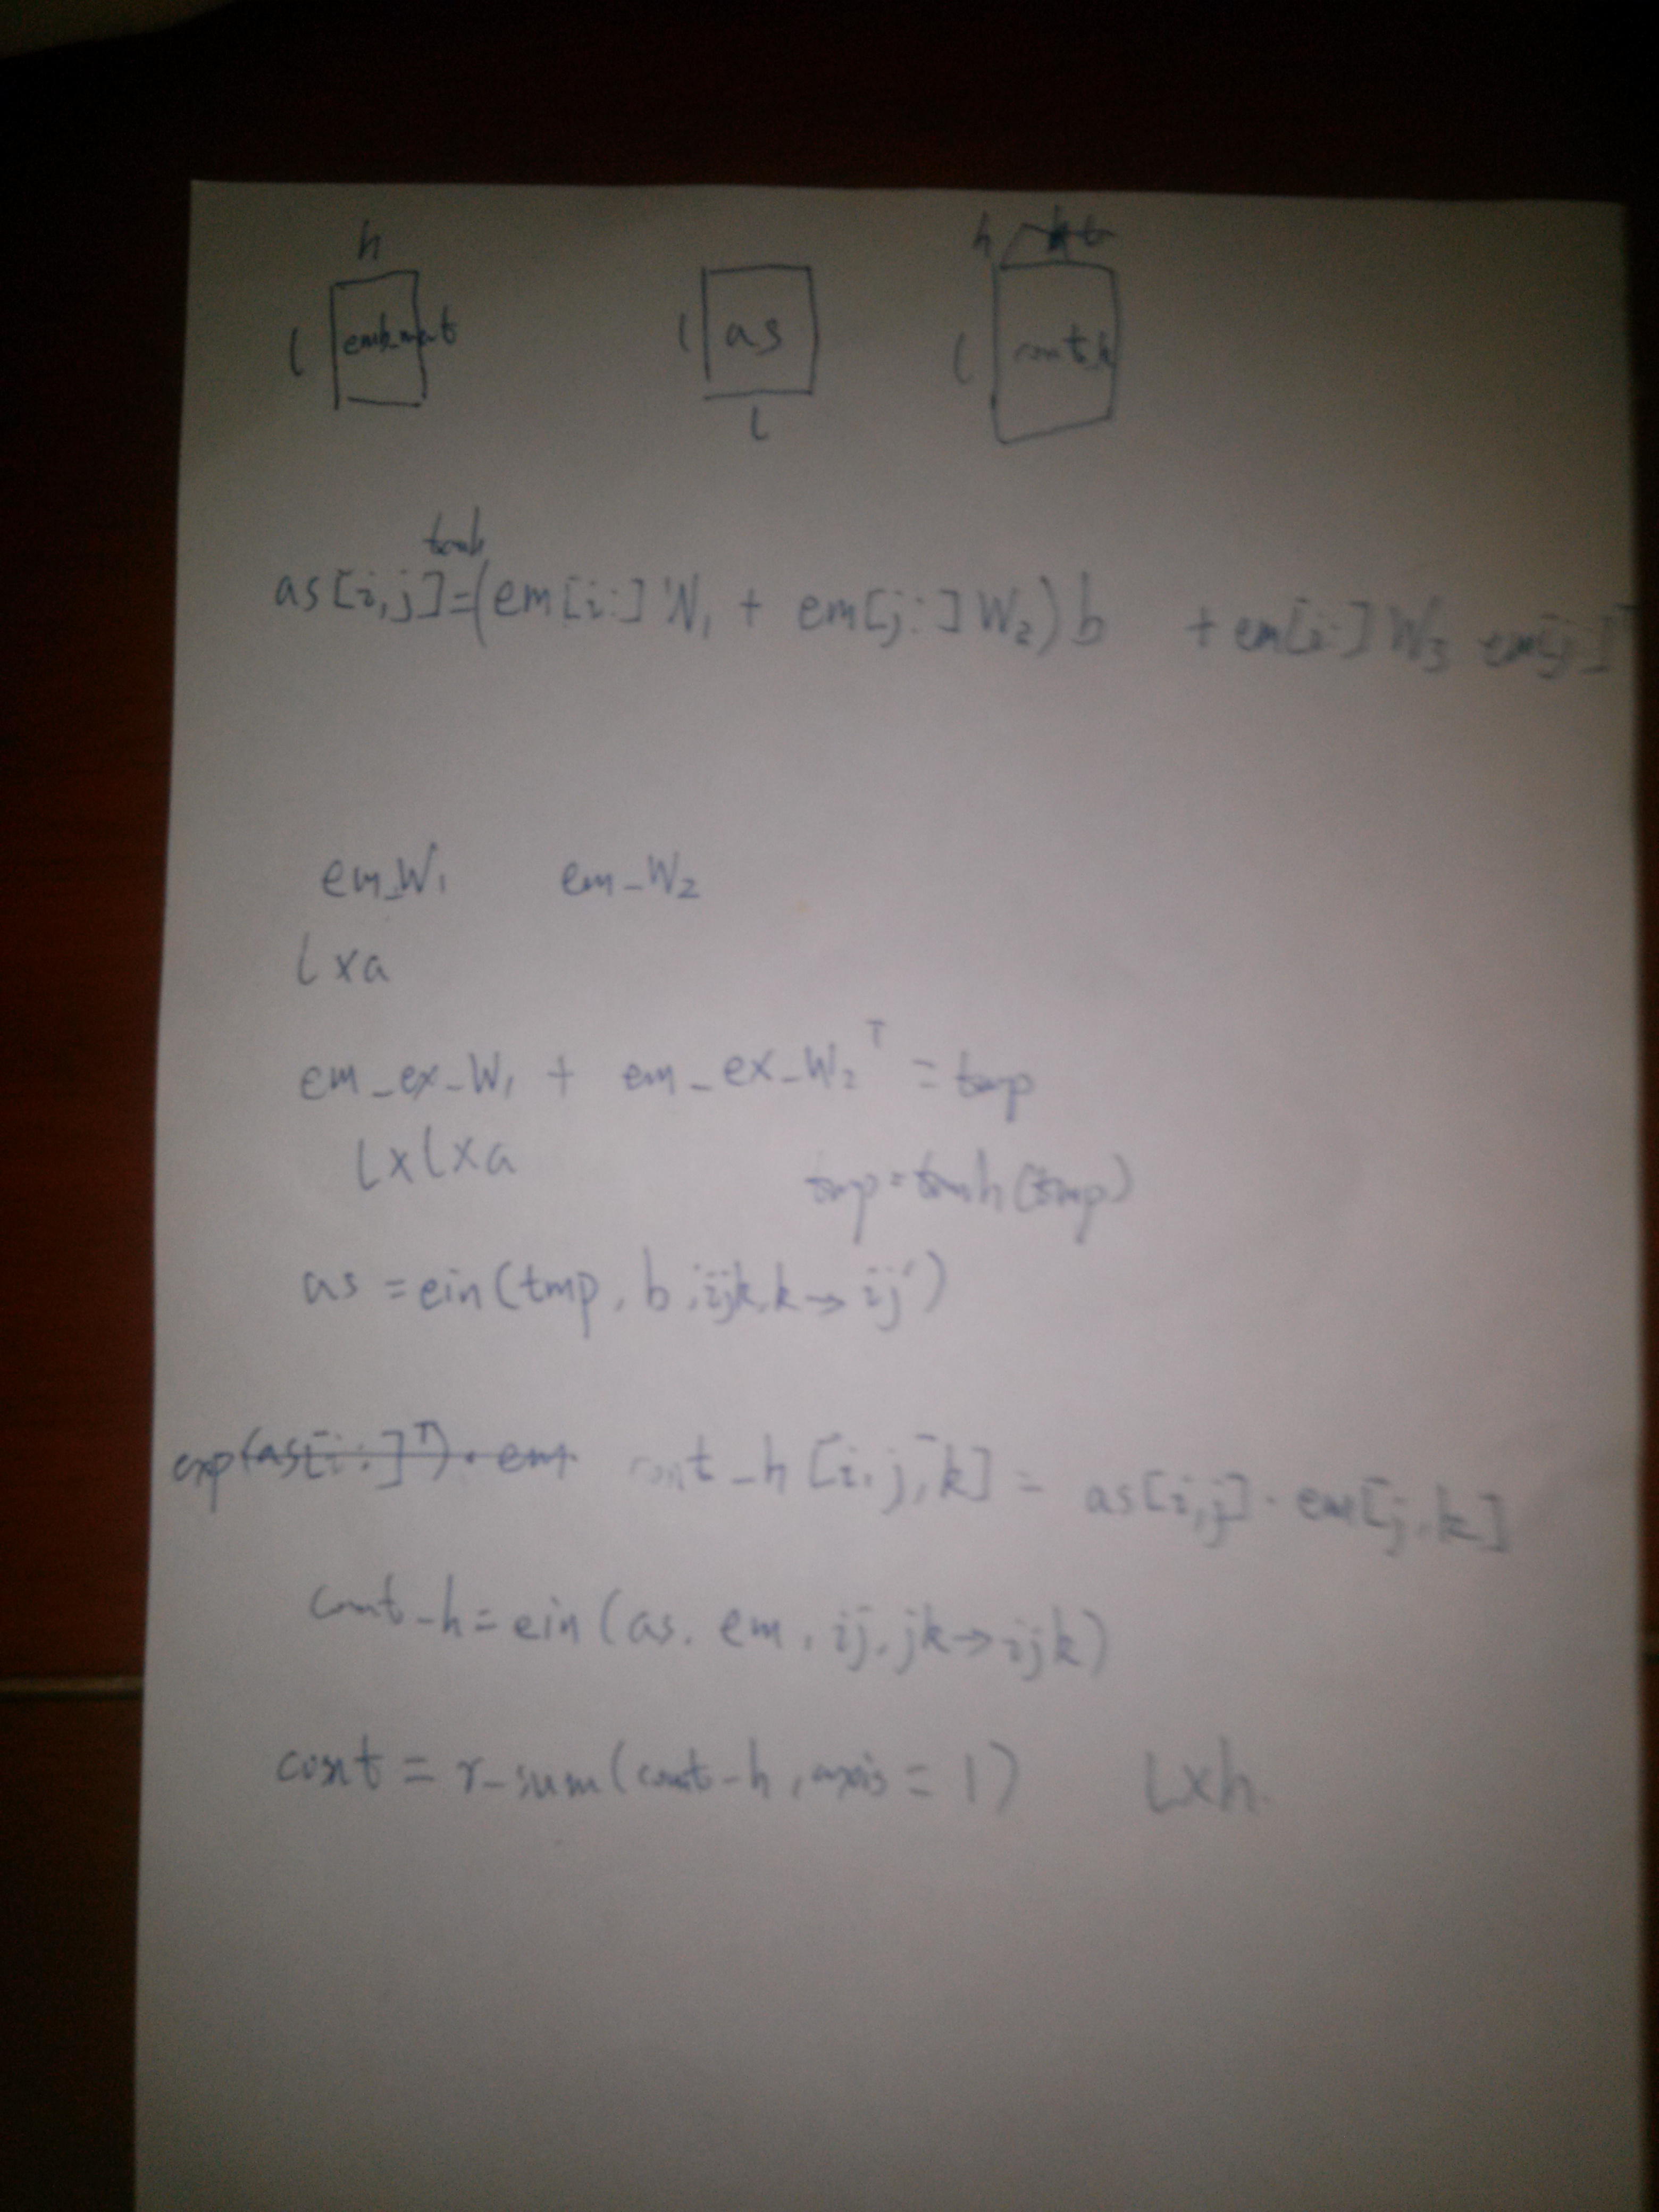 h h
l emb_mat l as l cont_h
l
tanh
as[i,j]=(em[i:]W₁ + em[j:]W₂)b + em[i:]W₃ em[j:]ᵀ
em_W₁ em_W₂
l×a
em_ex_W₁ + em_ex_W₂ᵀ = tmp
l×l×a tmp=tanh(tmp)
as = ein(tmp, b, ijk,k→ij')
exp(as[i:]ᵀ)·em cont_h[i,j,k] = as[i,j]·em[j,k]
cont_h = ein(as, em, ij,jk→ijk)
cont = r_sum(cont_h, axis=1) l×h